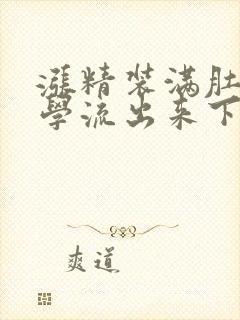 漲精装满肚
學流出来下
爽道